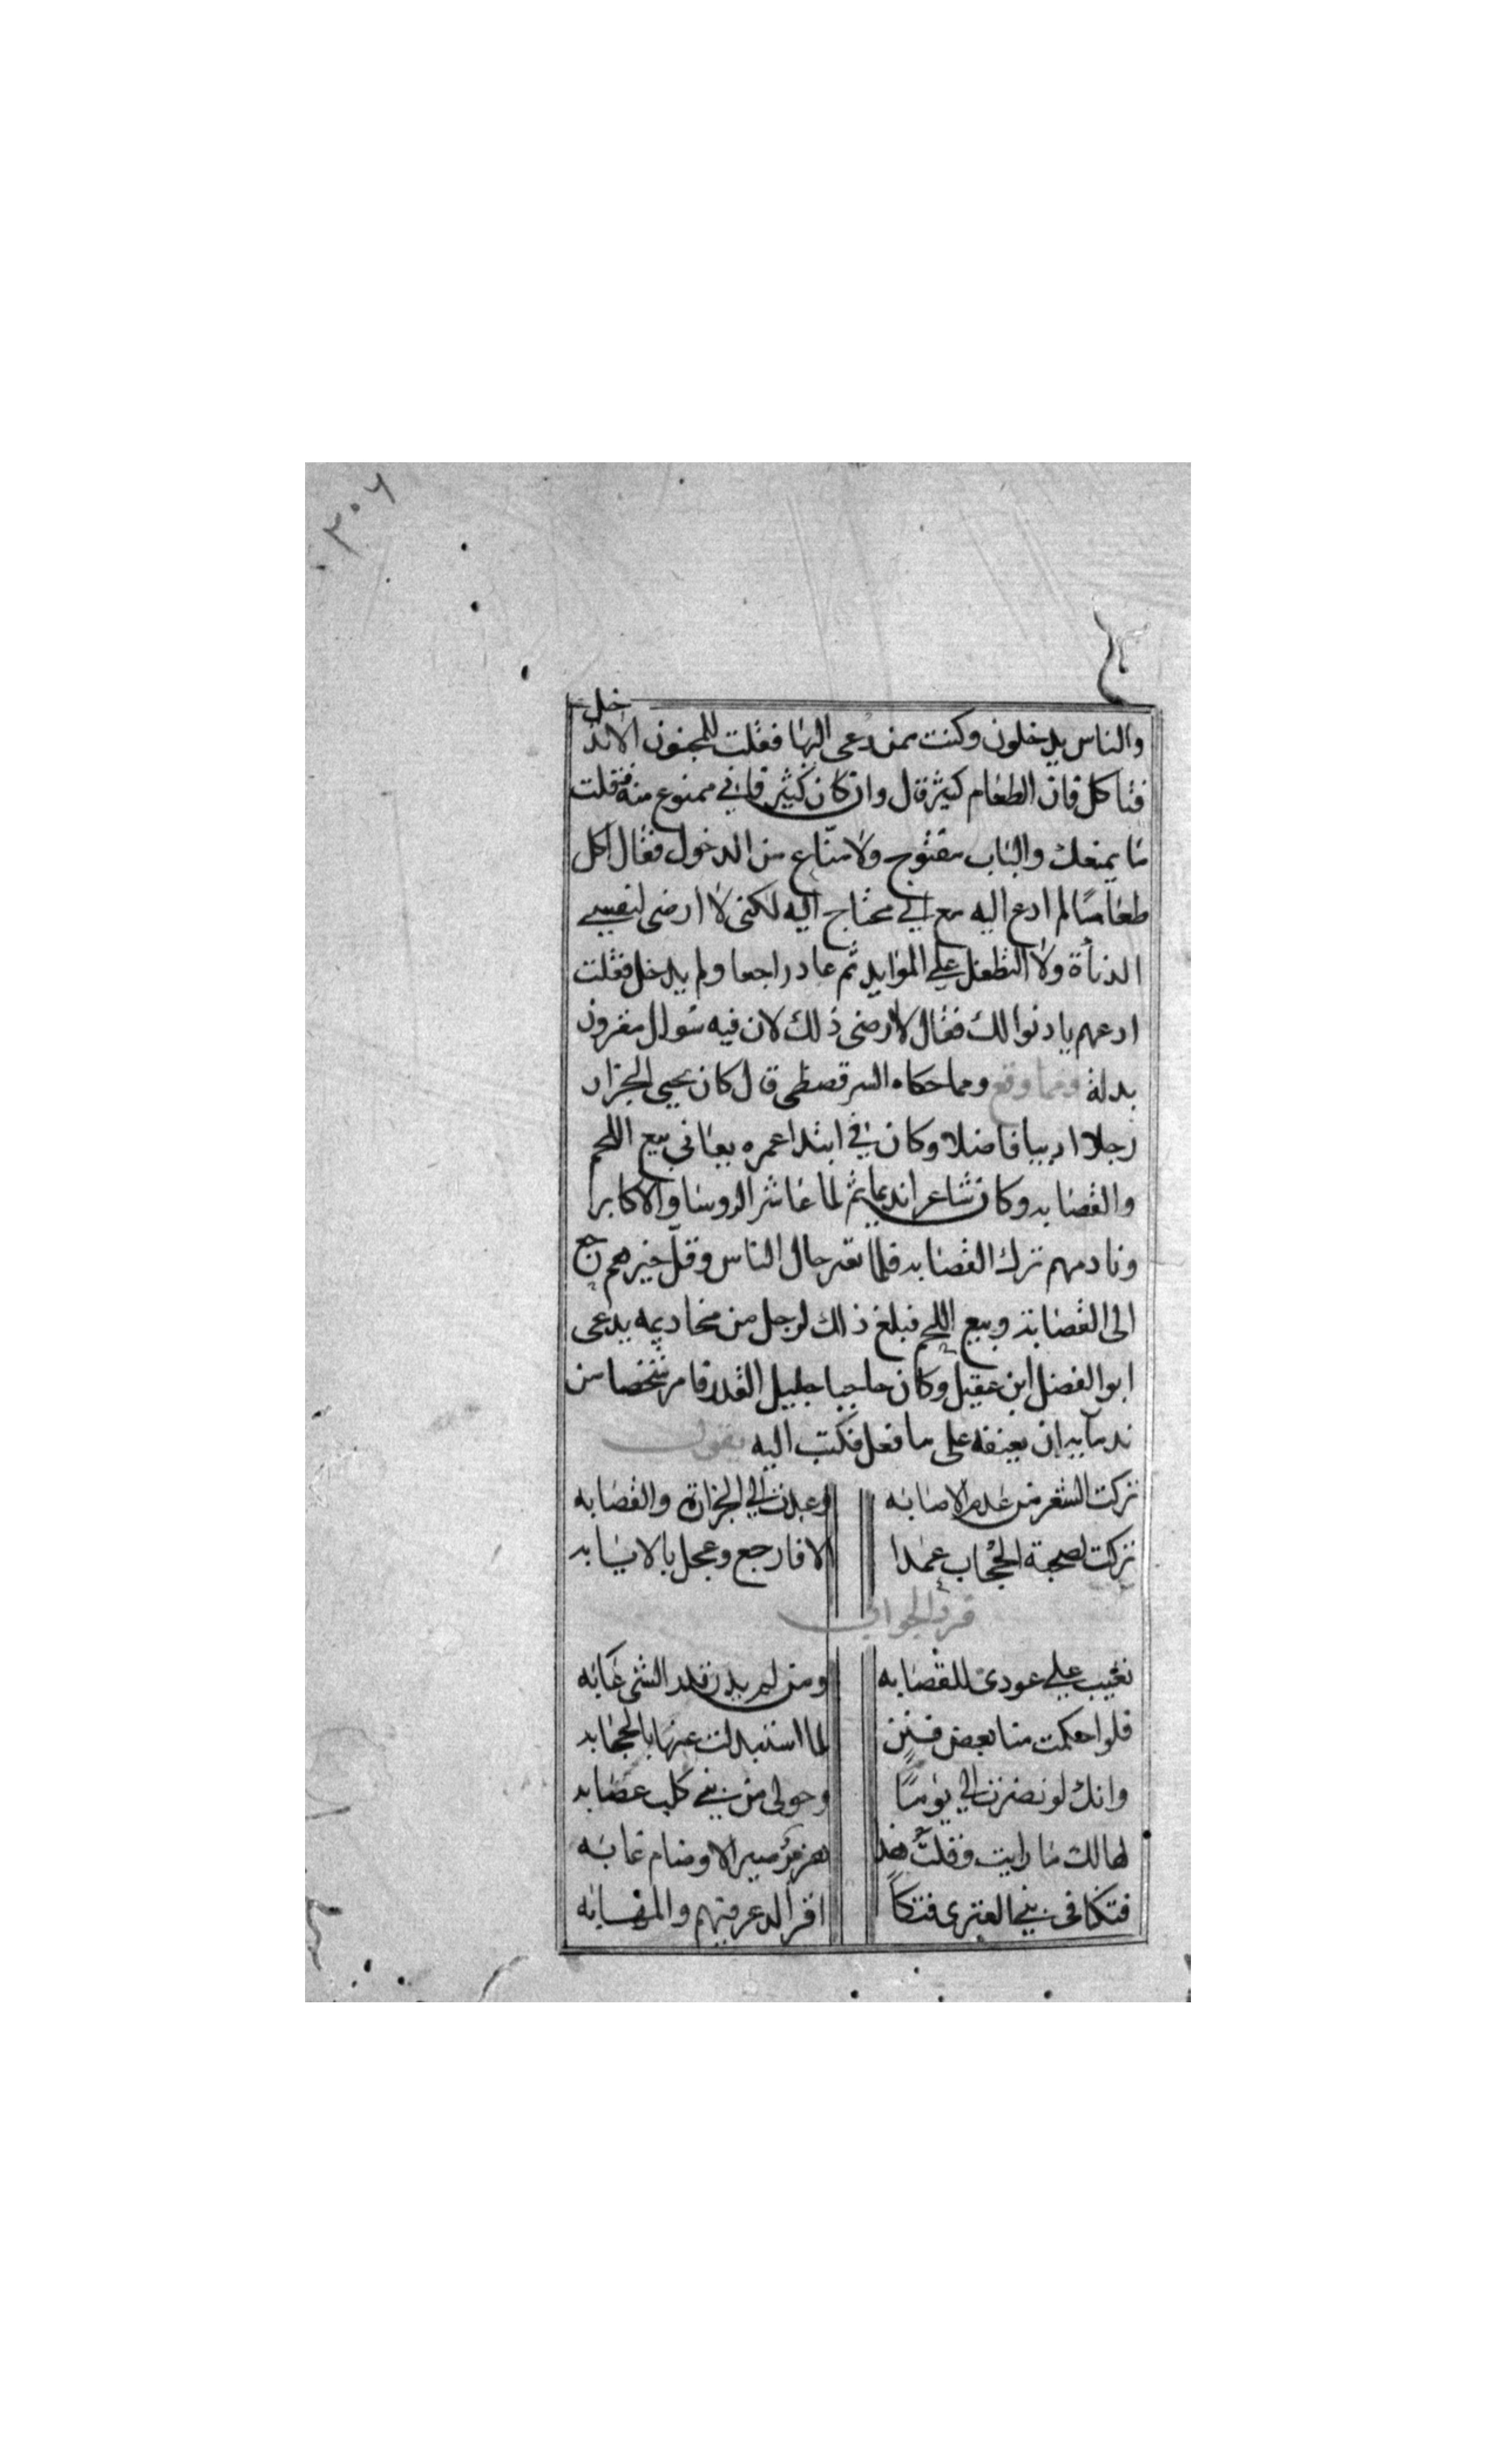 ٣٠٦
والناس يدخلون وكنت ممن دعى اليها فقلت للمجنون الا تدخل
فتاكل فان الطعام كثير قال وان كان كثير فاني ممنوع منه فقلت
ما يمنعك والباب مفتوح ولا منّاع من الدخول فقال اكل
طعاما لم ادع اليه مع اني محتاج اليه لكني لا ارضى لنفسي
الدنأة ولا التطفل على الموايد ثم عاد راجعا ولم يدخل فقلت
ادعهم ياذنوا لك فقال لا ارضى ذلك لان فيه سوال مقرون
بدلة ومما وقع ومما حكاه السرقصطى قال كان يحيى الجزار
رجلا اديبا فاضلا وكان في ابتدا عمره يعاني بيع اللحم
والقصابه وكان شاعرا نديما ثم لما عاشر الروسا والاكابر
ونادمهم ترك القصابه فلما تغير حال الناس وقلّ خيرهم رجع
الى القصابة وبيع اللحم فبلغ ذلك لرجل من مخاديمه يدعى
ابو الفضل ابن عقيل وكان حاجبا جليل القدر فامر شخصا من
ندمايه ان يعنفه على ما فعل فكتب اليه يقول
تركت الشعر من عدم الاصابه وعدت الي الجزارة والقصابه
تركت لصحبة الحجاب عمدا الا فارجع وعجل بالايابه
فرد الجواب
تعيب علي عودى للقصابه ومن لم يدر قدر الشى عابه
فلو احكمت منا بعض فنن لما استبدلت عنها بالحجابه
وانك لو نضرت الي يوما وحولى من بني كلب عصابه
لهالك ما رايت وقلت هذا هزبر صير الاوضام غابه
فتكنا فى بني العنزى فتكاً اقر الذعر فيهم والمهابه